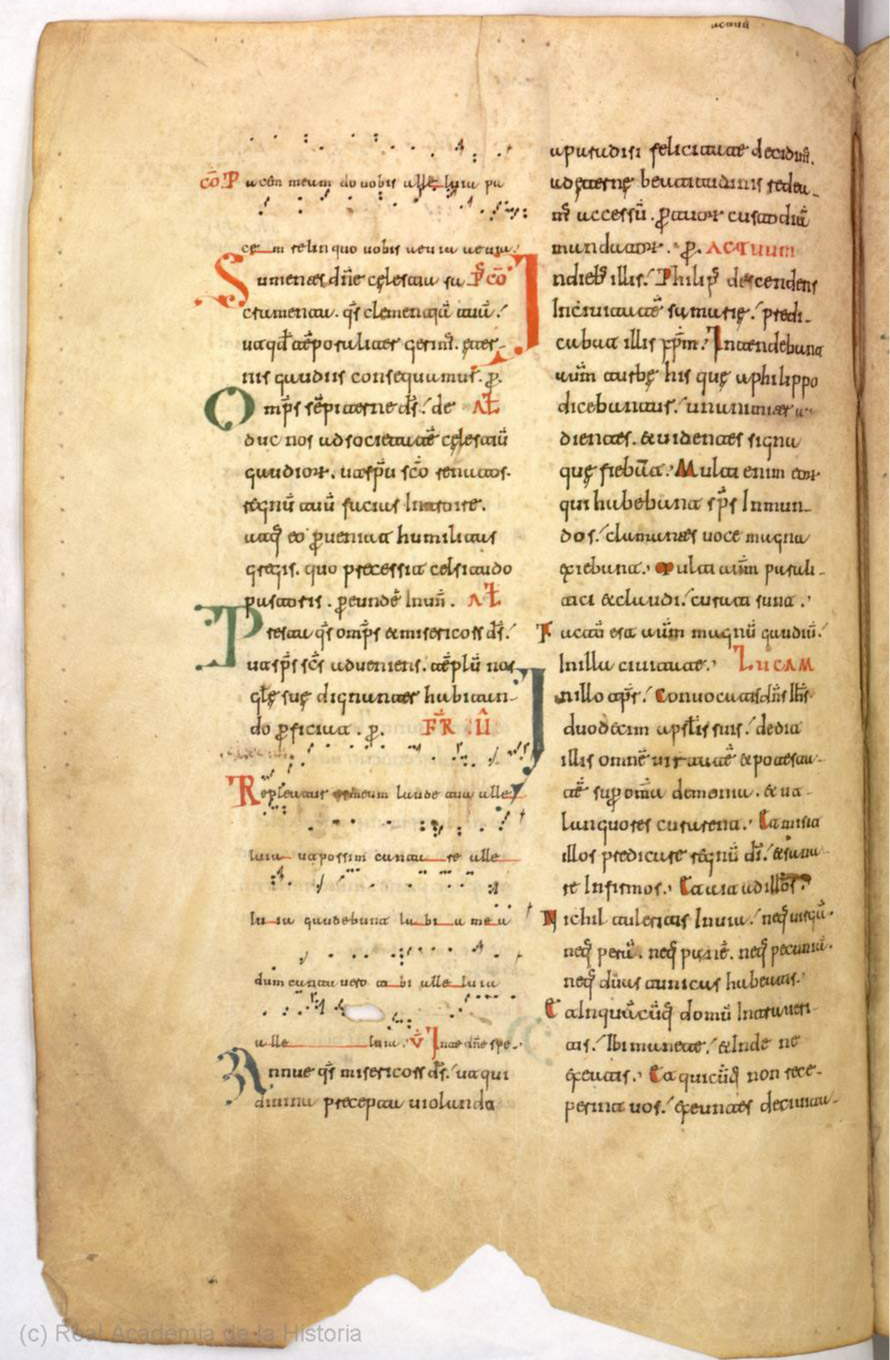 cō. Pacem meam do uobis alleluia pa
cem relinquo uobis aeuia aeuia.
Sumentes dn̄e cęlestia sa p̄s cō
cramenta. q̄s clementiā tuā.
ut qd̄ tēporaliter gerim̄. eter-
nis gaudiis consequamur. p̄.
Omp̄s sēpiterne ds̄. de Al̄
duc nos ad societatē cęlestiū
gaudior. ut sp̄u sc̄o renatos.
regnū tuū facias Introire.
utq; eo p̄ueniat humilitas
gregis. quo precessit celsitudo
pastoris. p̄ eundē Inun̄. Al̄
Presta q̄s omp̄s & misericors ds̄.
ut sp̄s sc̄s adueniens. tēplū nos
glę suę dignanter habitan-
do p̄ficiat. p̄. FR̄ .UI
Repleatur os meum laude tua alle
luia ut possim cantare alle
luia gaudebunt labia mea
dum cantauero tibi alleluia
alle luia. V̄ In te dn̄e spe.
Annue q̄s misericors ds̄. ut qui
diuina precepta uiolando
a paradisi felicitate decidim̄.
ad eternę beatitudinis redea-
m̄ accessū. p̄ tuor custodiā
mandator. p̄. Actuum
In dieb; illis. Philip̄ descendens
In ciuitatē samarię. predi-
cabat illis xp̄m. Intendebant
autm̄ turbę his quę a philippo
dicebantur. unanimiter au-
dientes. & uidentes signa
quę fiebāt. Multi enim eor
qui habebant sp̄s Inmun-
dos. clamantes uoce magna
exiebant. Multi autm̄ parali-
tici & claudi. curati sunt.
Factū est autm̄ magnū gaudiū.
In illa ciuitate. Lucam
In illo tp̄r. Conuocatis dn̄s Ih̄s
duodecim apst̄lis suis. dedit
illis omnē uirtutē & potesta-
tē sup̄ omīa demonia. & ut
languores curarent. Et misit
illos predicare regnū dī. & sana-
re Infirmos. Et ait ad illos.
Nichil tuleritis In uia. neq; uirgā.
neq; perā. neq; panē. neq; pecuniā.
neq; duas tunicas habeatis.
Et In quācūq; domū Intraueri-
tis. Ibi manete. & Inde ne
exeatis. Et quicūq; non rece-
perint uos. exeuntes de ciuita-
(c) Real Academia de la Historia